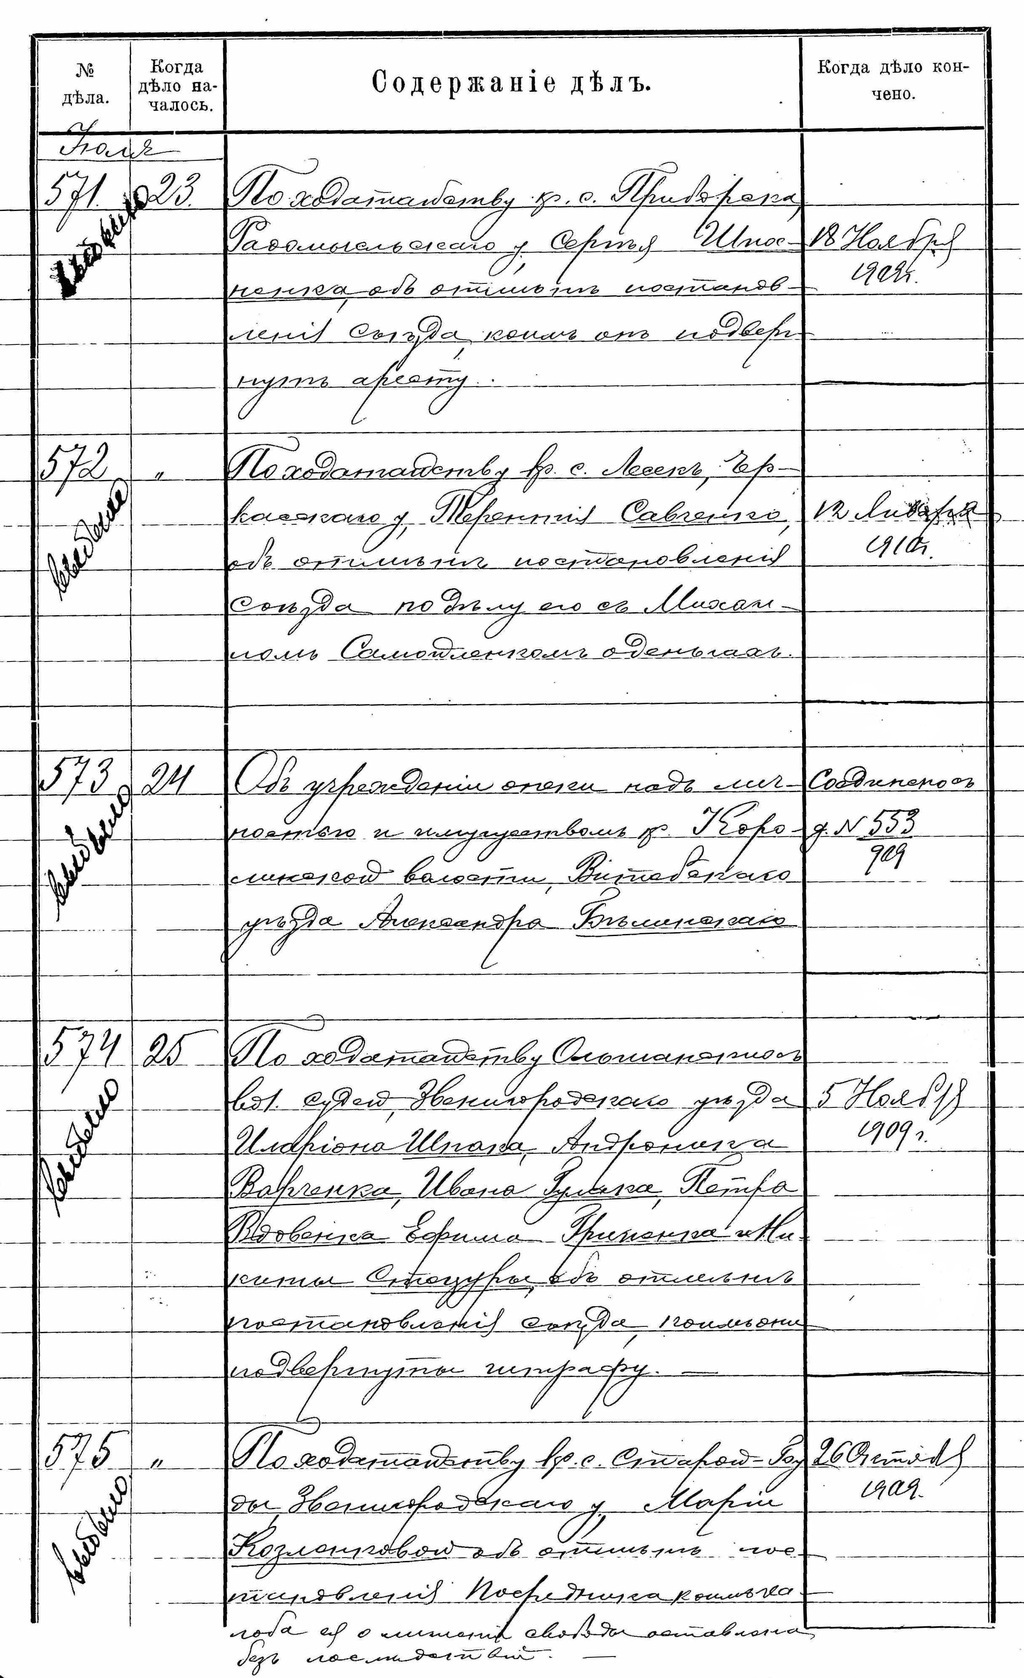 № дѣла.
Когда дѣло на-
чалось.
Содержаніе дѣлъ.
Когда дѣло кон-
чено.
Іюля
571. 23. По ходатайству кр. с. Приборска,
Радомысльскаго у, Сергѣя Шпос- 18 Ноября
ненка, объ отмѣнѣ постанов- 1909г.
ленія съѣзда, коимъ онъ подвер-
нутъ аресту.
выбыло
572 " По ходатайству кр. с. Лесекъ, Чер-
касскаго у, Терентія Савченко, 12 Января
объ отмѣнѣ постановленія 1910г.
съѣзда по дѣлу его съ Михаи-
ломъ Самойленкомъ о деньгахъ.
выбыло
573 24 Объ учрежденіи опеки надъ лич- Соединено съ
ностью и имуществомъ кр. Коро- д. N 553
линской волости, Витебскаго 909
уѣзда Александра Бѣлинскаго
выбыло
574 25 По ходатайству Ольшанскихъ
вол. судей, Звенигородскаго уѣзда 5 Ноября
Иларіона Шпака, Андроника 1909 г.
Варченка, Ивана Гулака, Петра
Вдовенка Ефима Гриненка и Ми-
киты Стоцуры, объ отмѣнѣ
постановленія съѣзда, коимъ они
подвергнуты штрафу. —
выбыло
575 " По ходатайству кр. с. Старой-Бу 26 Октября
ды, Звенигородскаго у, Маріи 1909.
Козленковой объ отмѣнѣ пос-
тановленія Посредника коимъ жа-
лоба ея о лишеніи свободы оставлена
безъ послѣдствій. —
выбыло